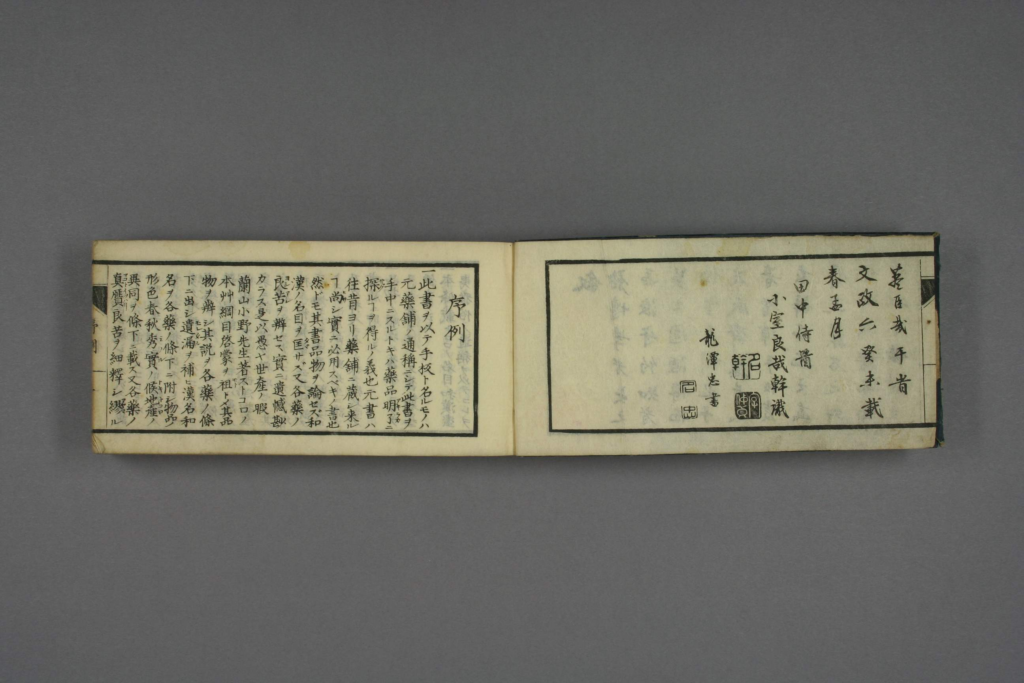 文政六癸未載
春孟月
田中侍醫
小室良哉幹識
龍澤忠書
序例
一此書ヲ以テ手板ト名ルモノハ
元藥舗ノ通稱ニシテ此書ヲ
手中ニスルトキハ藥品明了ニ
探ルヿヲ得ルノ義也元書ハ
往昔ヨリ藥舗ニ藏シ來ル
ヿ尚シ實ニ必用スベキノ書也
然トモ其書品物ヲ論セス和
漢ノ名目ヲ匡サス又各藥ノ
良苦ヲ辨セス實ニ遺憾尠
カラス是以愚世産ノ暇
蘭山小野先生著ストコロノ
本艸綱目啓蒙ヲ祖トシ其品
物ヲ辨シ其説ヲ各藥ノ條
下ニ出シ遺漏ヲ補ヒ漢名和
名ヲ各藥ノ條下ニ附シ物品
形色春秋秀實ノ候地産ノ
異同ヲ條下ニ載ス又各藥ノ
真贋良苦ヲ細釋シ